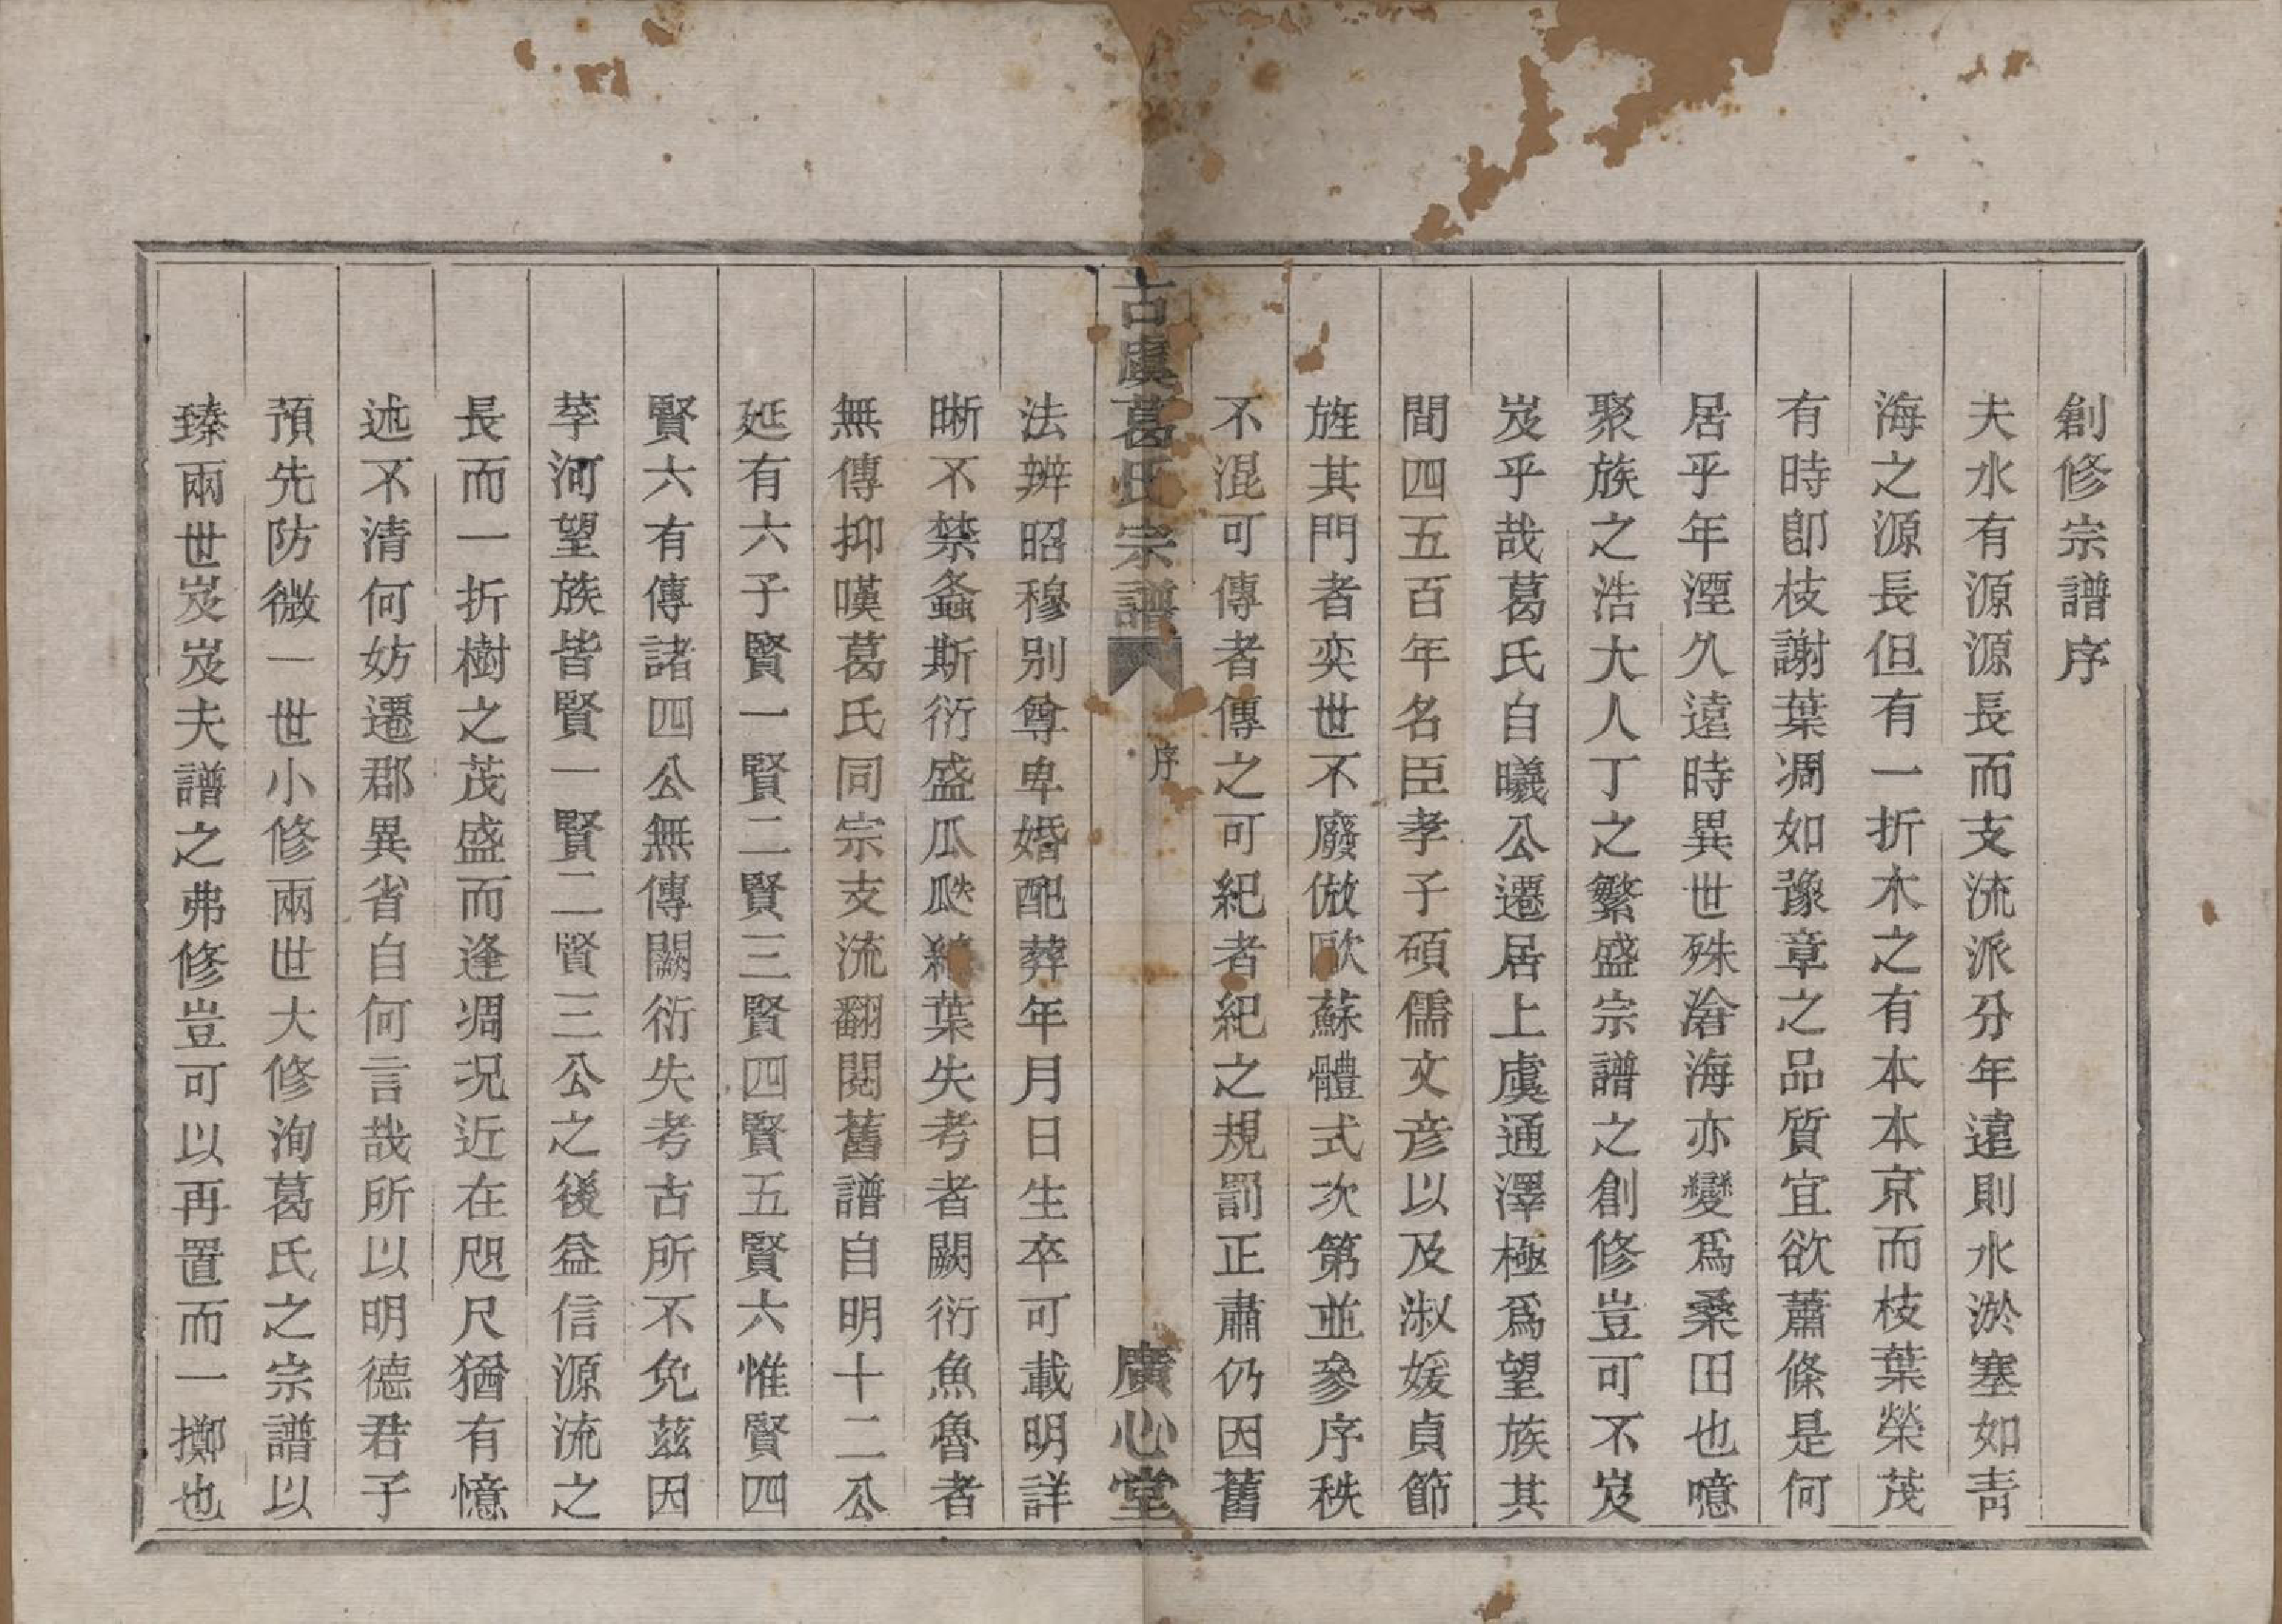 創修宗譜序
夫水有源源長而支流派分年遠則水淤塞如靑
海之源長但有一折木之有本本京而枝葉榮茂
有時卽枝謝葉凋如豫章之品質宜欲蕭條是何
居乎年湮久遠時異世殊滄海亦變爲桑田也噫
聚族之浩大人丁之繁盛宗譜之創修豈可不岌
岌乎哉葛氏自曦公遷居上虞通澤極爲望族其
間四五百年名臣孝子碩儒文彥以及淑媛貞節
旌其門者奕世不廢倣歐蘇體式次第並參序秩
不混可傳者傳之可紀者紀之規罰正肅仍因舊
古虞葛氏宗譜 序 廣心堂
法辨昭穆別尊卑婚配葬年月日生卒可載明詳
晰不禁螽斯衍盛瓜瓞綿葉失考者闕衍魚魯者
無傳抑嘆葛氏同宗支流翻閱舊譜自明十二公
延有六子賢一賢二賢三賢四賢五賢六惟賢四
賢六有傳諸四公無傳闕衍失考古所不免茲因
莘河望族皆賢一賢二賢三公之後益信源流之
長而一折樹之茂盛而逢凋況近在咫尺猶有憶
述不清何妨遷郡異省自何言哉所以明德君子
預先防微一世小修兩世大修洵葛氏之宗譜以
臻兩世岌岌夫譜之弗修豈可以再置而一擲也